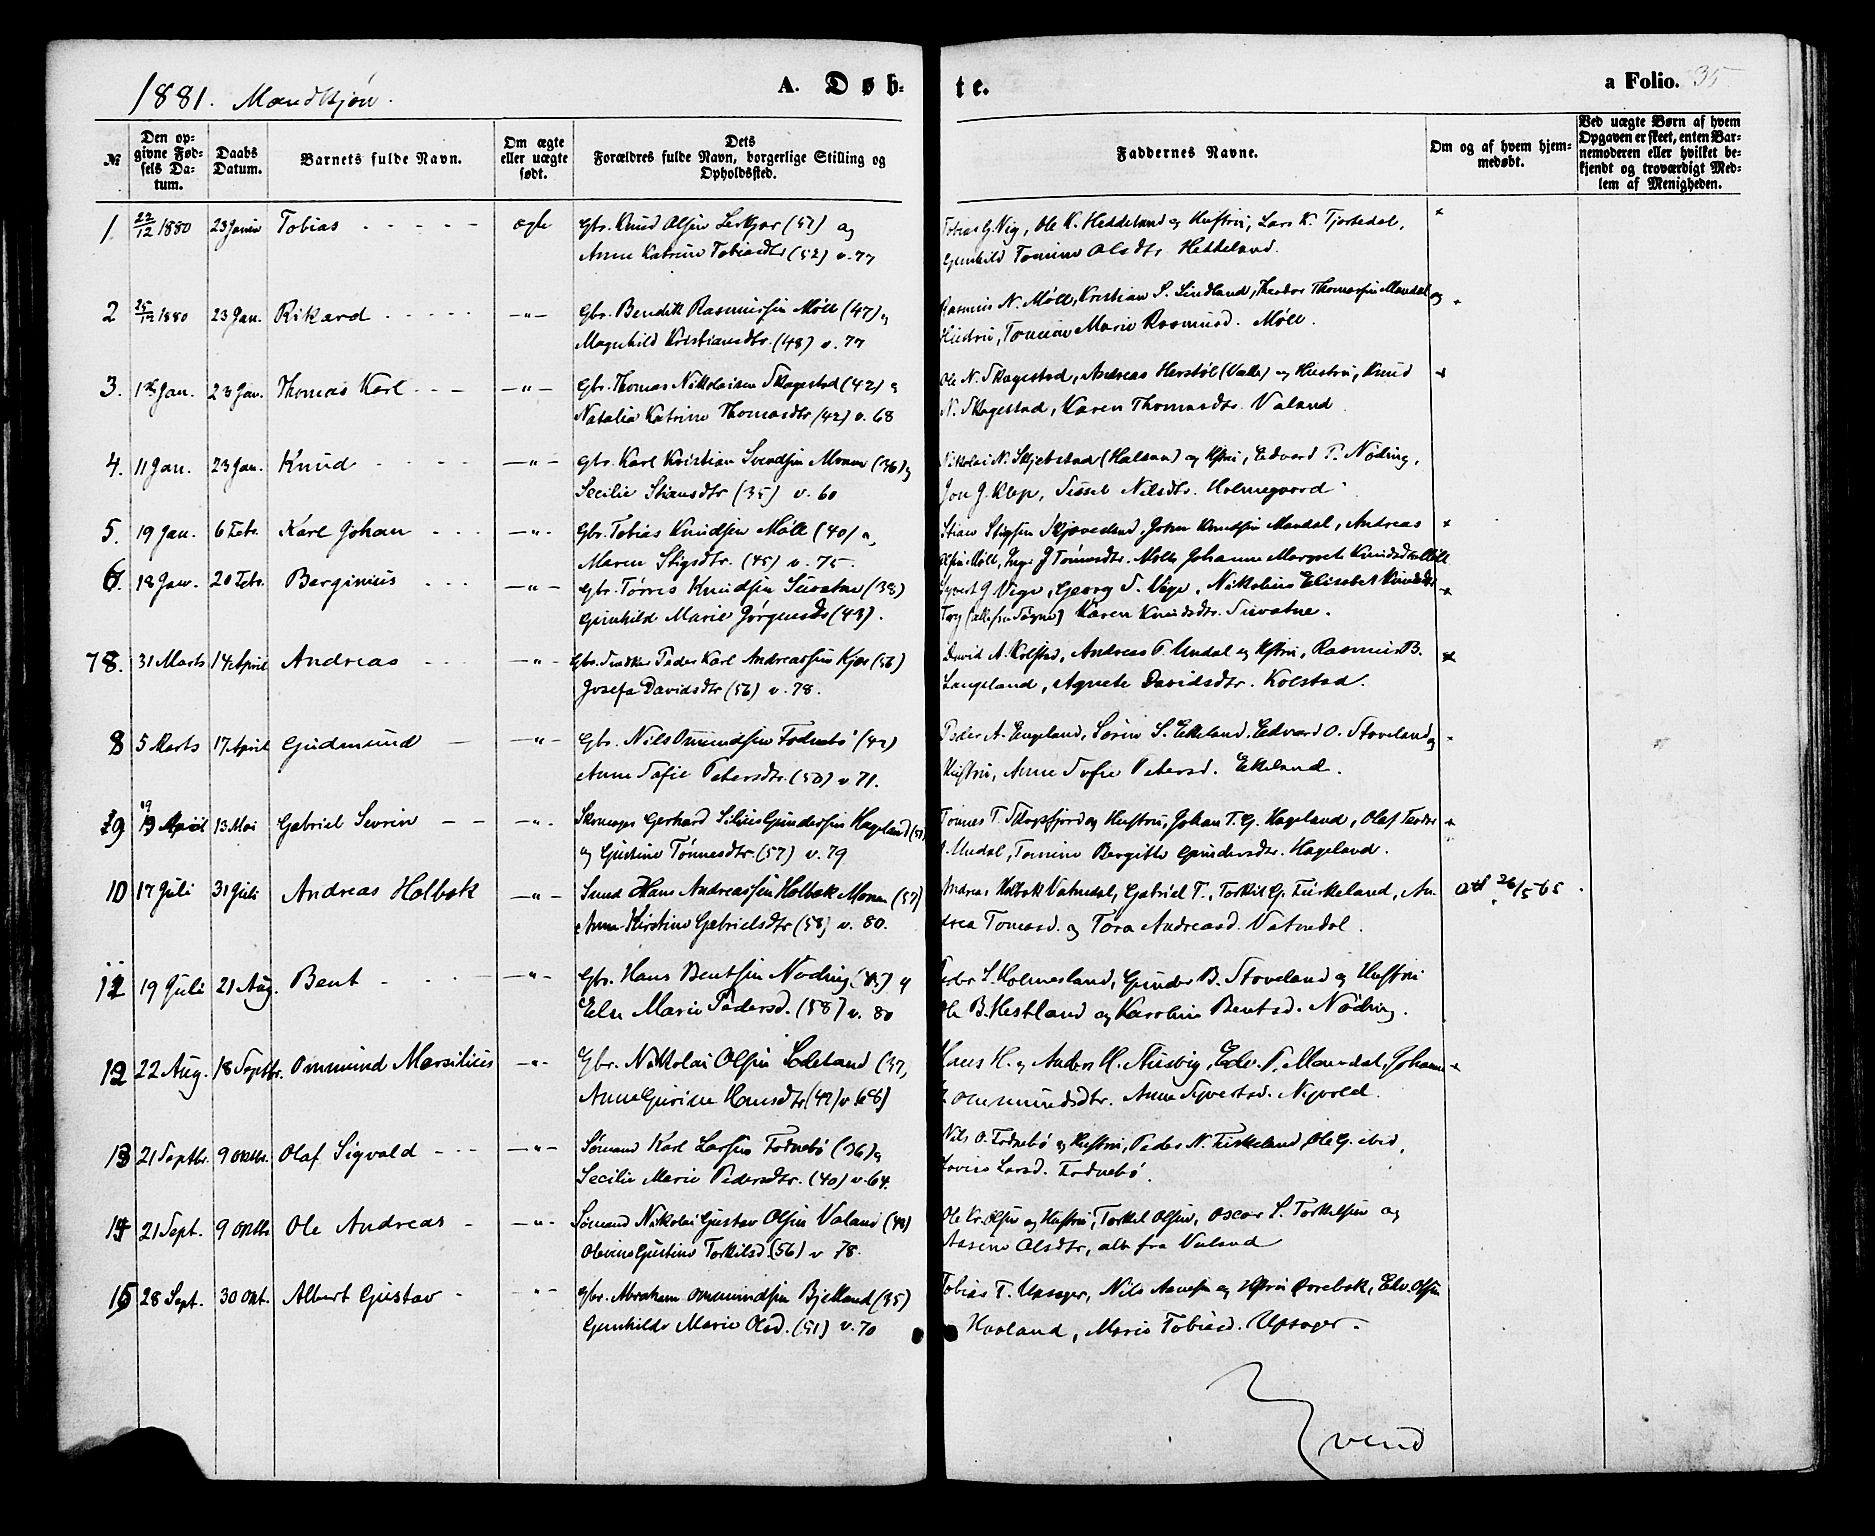 1881. Mandkjön.
A. Døb-
te.
a Folio. 35
№
Den opgivne Fødsels Datum.
Daabs Datum.
Barnets fulde Navn.
Om ægte eller uægte født.
Dets Forældres fulde Navn, borgerlige Stilling og Opholdssted.
Faddernes Navne.
Om og af hvem hjemmedøbt.
Ved uægte Børn af hvem Opgaven er skeet, enten Barnemoderen eller hvilket bekjendt og troværdigt Medlem af Menigheden.
1. 22/12 1880 23 Januar Tobias ægte Gbr. Knud Olsen Leikjær (51) og Tobias G. Vig, Ole K. Heddeland og Hustru, Lars K. Tjortedal,
Anne Katrine Tobiasdtr (52) v. 77 Gunhild Tomine Olsdtr. Heddeland.
2 25/12 1880 23 Jan. Rikard -"- Gbr. Bendik Rasmussen Møll (47) og Rasmus N. Møll, Kristian S. Lindland, Theodor Thomassen Mandal og
Magnhild Kristiansdtr. (48) v. 77 Hustru, Tomine Marie Rasmusd. Møll.
3. Jan. 23 Jan. Thomas Karl -"- Gbr. Thomas Nikolaisen Skagestad (42) og Ole N. Skagestad, Andreas Herstøl (Valle) og Hustru, Knud
Natalia Katrine Thomasdtr (42) v. 68 N. Skagestad, Karen Thomasdtr. Valand
4. 11 Jan. 23 Jan. Knud -"- Gbr. Karl Kristian Svendsen Monen (36) og Nikolai N. Skjebstad (Halsaa) og Hstru, Edvard T. Nöding,
Secilie Stiansdtr (35) v. 60 Jon J. Klep, Sissel Nilsdtr. Holmegaard
5. 19 Jan. 6 Febr. Karl Johan -"- Gbr. Tobias Knudsen Møll (40) og Stian Stigsen Skjeveland, Johan Knudsen Mandal, Andreas
Maren Stigsdtr. (45) v. 75. Olsen Møll, Inger J. Tönnesdtr. Møll, Johanne Margret Knudsdtr Møll
6. 18 Jan. 20 Febr. Berginius -"- Gbr. Tørres Knudsen Survatne (38) Syvert G. Vige, Georg S. Vige, Nikoline Elisabet Knudsdtr
Gunhilde Marie Jørgensdtr (43). (alle fra Søgne) Karen Knudsdtr. Survatne.
78. 31 Marts 14 April Andreas -"- Gbr. Peder Karl Andreassen Kjær (56) David A. Kolstad, Andreas T. Undal og Hstru, Rasmus B.
Josefa Davidsdtr (56) v. 78. Langeland, Agnete Davidsdtr. Kolstad.
8 5 Marts 17 April Gudmund -"- Gbr. Nils Omundsen Fodnebö (42) Peder A. Engeland, Sörin S. Ekeland, Edvard O. Stoveland og
Anne Sofie Petersdtr. (50) v 71. Hustru, Anne Sofie Petersd. Ekeland.
9 19 April 13 Mai Gabriel Severin -"- Skomager Gerhard Silius Gundersen Hageland Tönnes T. Skogsfjord og Hustru, Johan T. G. Hageland, Olaf
og Gustine Tönnesdtr. (57) v. 79 Undal, Tomine Bergitte Gundersdtr. Hageland.
10 17 Juli 31 Juli Andreas Holbæk -"- Smed Hans Andreassen Holbæk Monen (57) Andreas Holbæk Vatnedal, Gabriel T., Torkil G. Fuskeland, An-
Anne Kirstine Gabrielsdtr (58) v. 80. drea Tomasd. og Tora Andreasd. Vatnedal.
att 26/5-65
11 19 Juli 21 Aug. Bent -"- Gbr. Hans Bentsen Nöding og Peder S. Holmesland, Gunder B. Stoveland og Hustru
Else Marie Pedersd. (58) v. 80 Ole B. Vestland og Karoline Bentsd. Nöding.
12 22 Aug. 18 Septbr. Ommund Marsilius -"- Gbr. Nikolai Olsen Ldeland (37, Hans H. og Anders H. Stusvig, Edv. T. Mandal, Johanne
Anne Gurine Hansdtr (42) v. 68) Ommundsdtr. Anne Syvertsd. Nyvold.
13 21 Septbr. 9 Oktbr. Olaf Sigvald -"- Sømand Karl Larsen Fodnebö (36) og Nils O. Fodnebö og Hustru, Peder N. Fuskeland, Ole G. ibid,
Secilie Marie Pedersdtr. (40) v. 64. Lovise Larsd. Fodnebö.
14 21 Sept. 9 Oktb Ole Andreas -"- Sømand Nikolai Gustav Olsen Valand Ole Kr. Olsen og Hustru, Torkel Olsen, Oscar S. Torkelsen og
Gustine Torkilsd. (56) v 78. Aasine Olsdtr, alle fra Valand
15 28 Sept. 30 Okt. Albert Gustav -"- Gbr. Abraham Ommundsen Bjelland (35) Tobias T. Upsager, Nils Aanesen og Hstru Porebæk, Edv. Olsen
Gunhilde Marie Olsd. (51) v. 70 Haaland, Marie Tobiasd. Upsager.